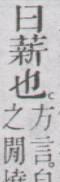 曰薪也。方言自
之閒